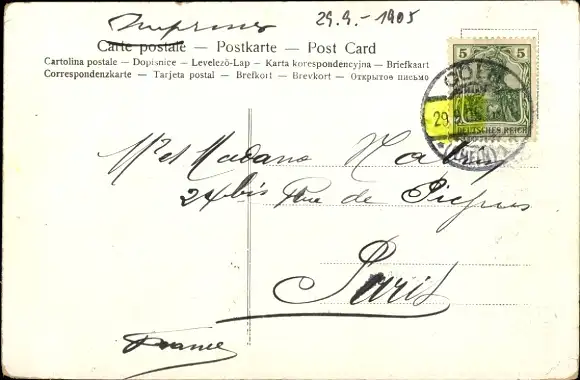 Imprimés 29.9.-1905
Carte postale — Postkarte — Post Card
Cartolina postale — Dopisnice — Levelező-Lap — Karta korespondencyjna — Briefkaart
Correspondenzkarte — Tarjeta postal — Brefkort — Brevkort — Открытое письмо
5 5
CÖLN
29.9.05
DEUTSCHES REICH
(RHEIN)
Mr et Madame
24 bis Rue de Picpus
Paris
France